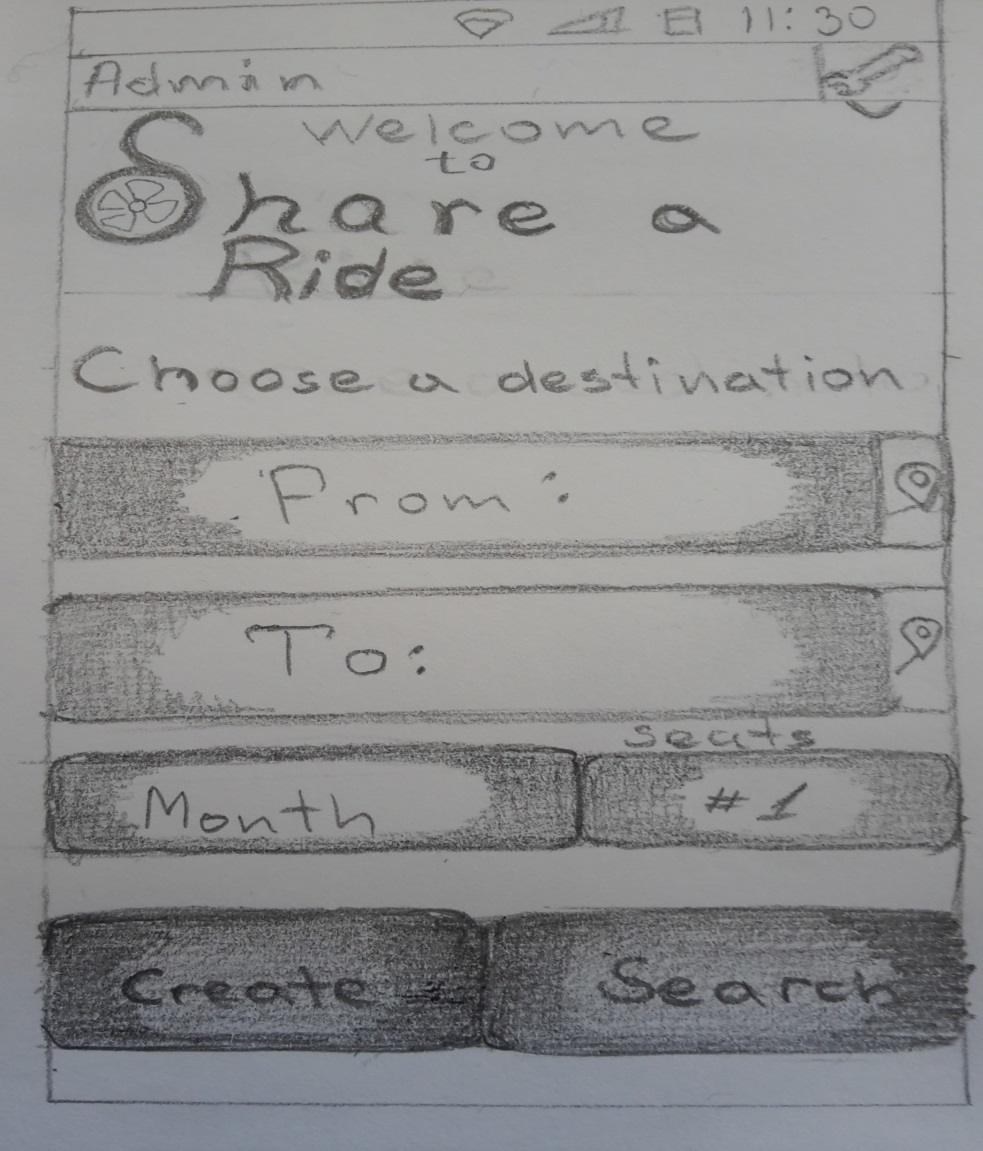 11:30
Admin
Welcome
to
Share a
Ride
Choose a destination
From:
To:
seats
Month #1
Create Search